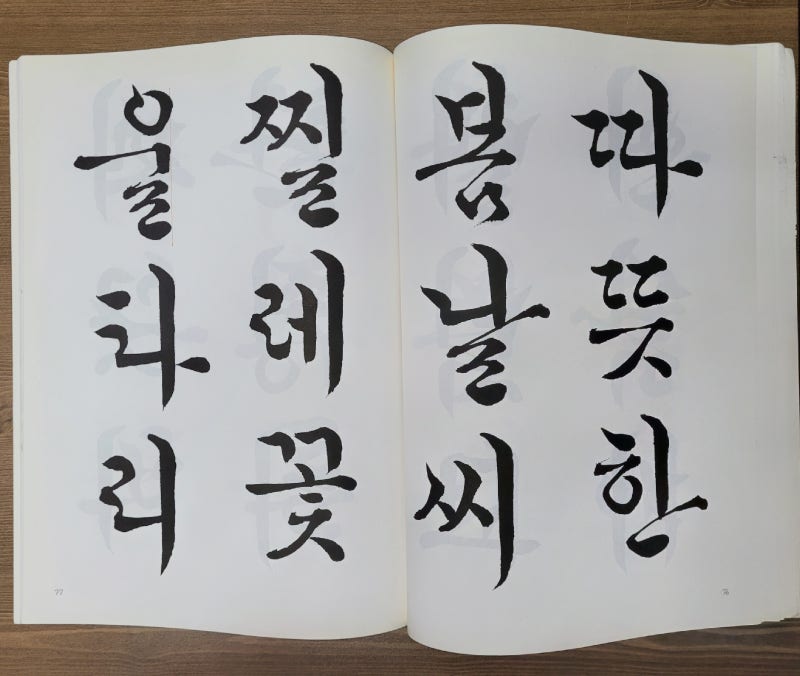 따뜻한
봄날씨
76
찔레꽃
울타리
77